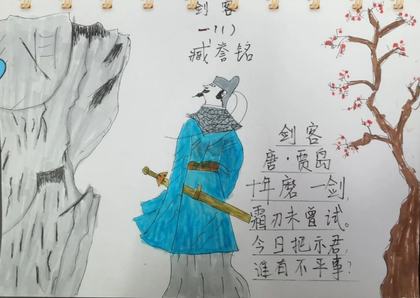 剑客
一11)
臧誉铭
剑客
唐·贾岛
十年磨一剑
霜刃未曾试。
今日把示君,
谁有不平事?